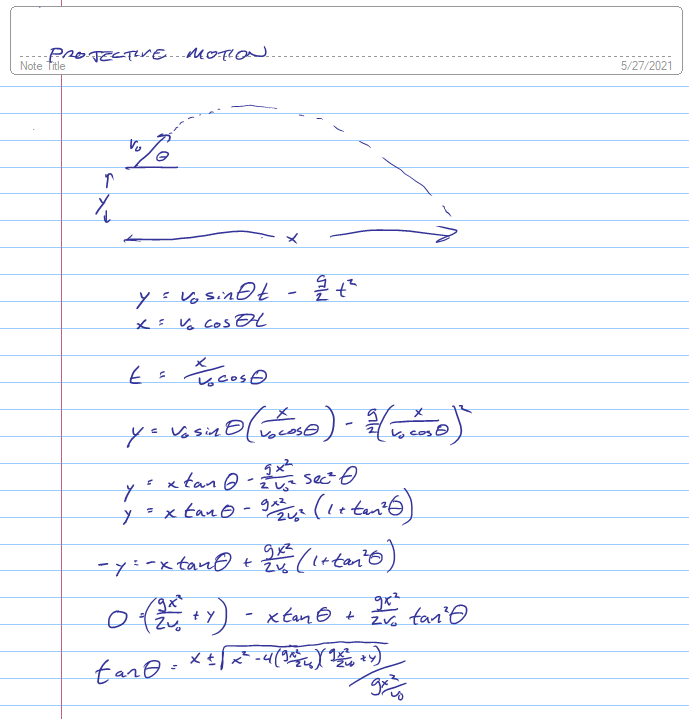 PROJECTIVE MOTION
Note Title
5/27/2021
v₀
θ
y
x
y = v₀ sinθt - g/2 t²
x = v₀ cosθt
t = x/(v₀cosθ)
y = v₀ sinθ(x/(v₀cosθ)) - g/2(x/(v₀cosθ))²
y = x tanθ - gx²/(2v₀²) sec²θ
y = x tanθ - gx²/(2v₀²) (1 + tan²θ)
-y = -x tanθ + gx²/(2v₀) (1 + tan²θ)
0 = (gx²/(2v₀) + y) - x tanθ + gx²/(2v₀) tan²θ
tanθ = x ± √(x² - 4(gx²/(2v₀))(gx²/(2v₀) + y)) / (gx²/v₀)